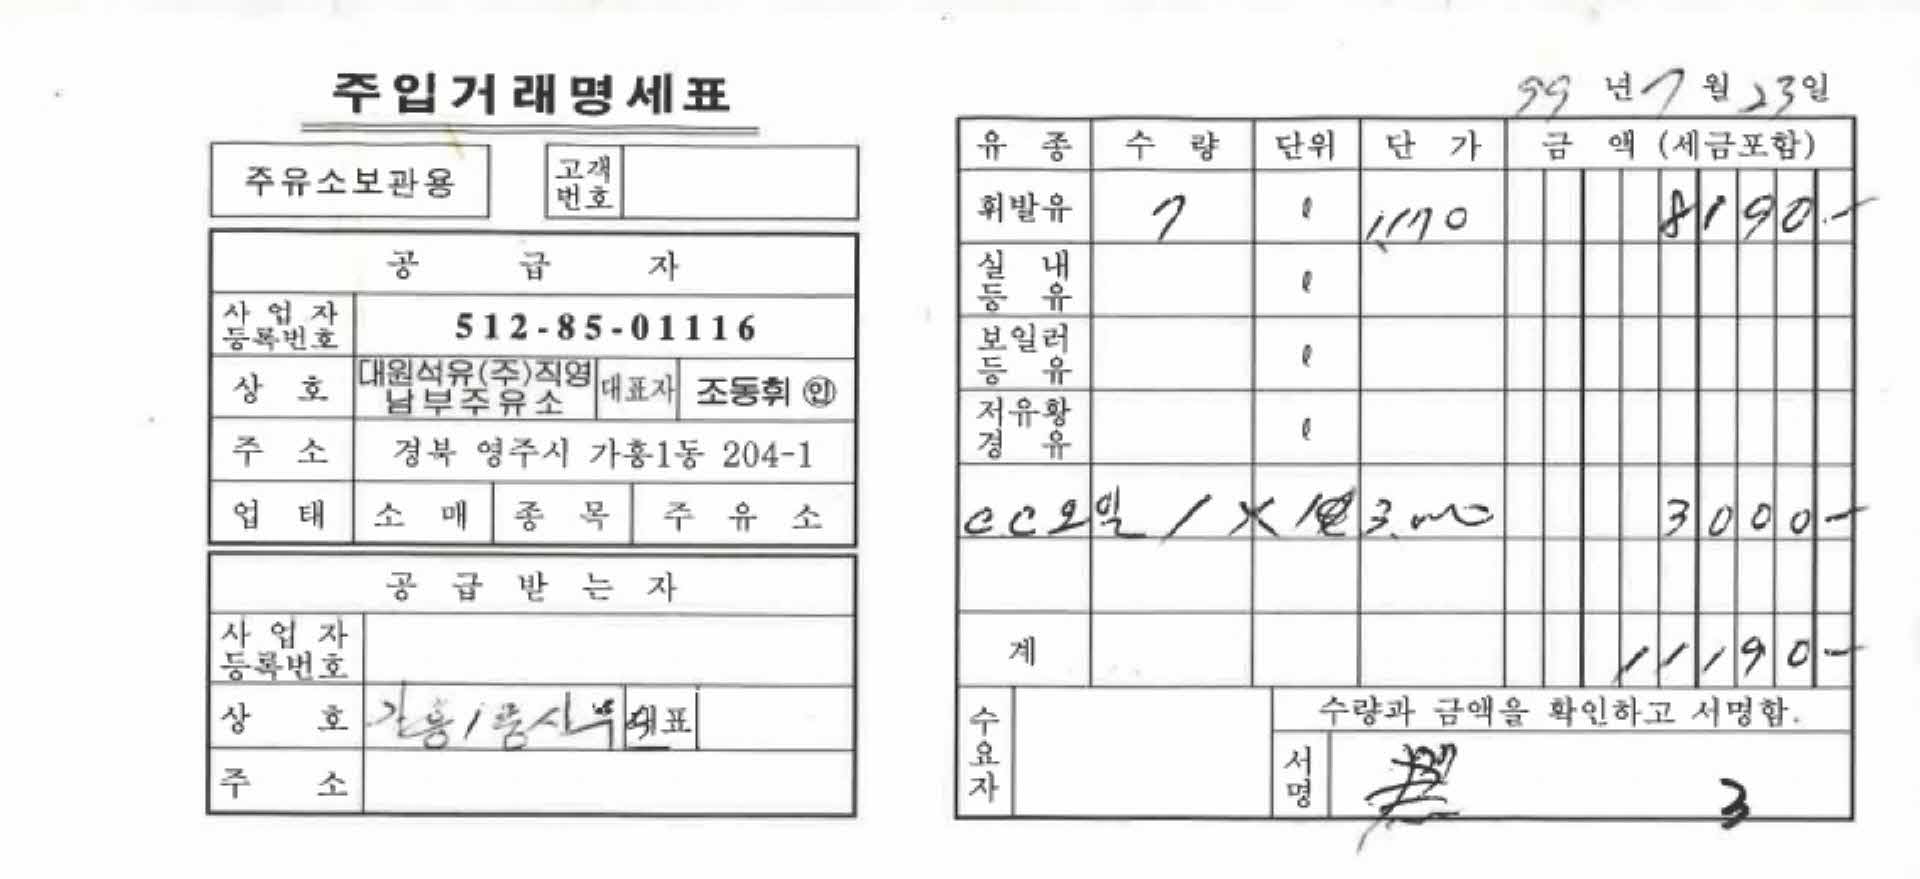 주입거래명세표
주유소보관용 고객번호
공 급 자
사업자등록번호 512-85-01116
상 호 대원석유(주)직영 남부주유소 대표자 조동휘 ㊞
주 소 경북 영주시 가흥1동 204-1
업 태 소 매 종 목 주 유 소
공 급 받 는 자
사업자등록번호
상 호 가흥1동사무소 대표
주 소
99 년 7 월 23 일
유 종 수 량 단위 단 가 금 액 (세금포함)
휘발유 7 ℓ 1,170 8190.-
실내등유 ℓ
보일러등유 ℓ
저유황경유 ℓ
CC오일 1 X 1ℓ 3.000 3000-
계 11190-
수요자
수량과 금액을 확인하고 서명함.
서명 3